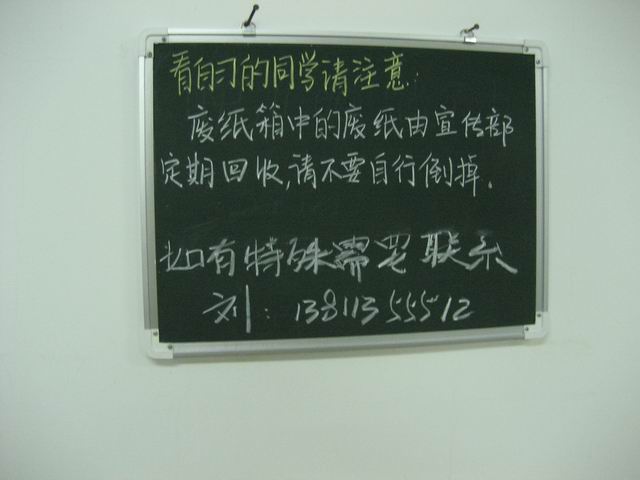 看自习的同学请注意:
废纸箱中的废纸由宣传部
定期回收,请不要自行倒掉.
如有特殊需要联系
刘: 13811355512